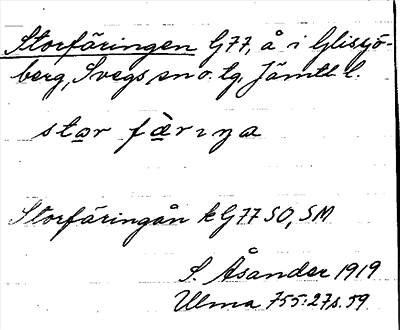 Storfäringen G77, å i Glissjö-
berg, Svegs sn o. tg, Jämtl l.
star fàrıŋa
Storfäringån k G77 SO, SM
S. Åsander 1919
Ulma 755:27 s. 59